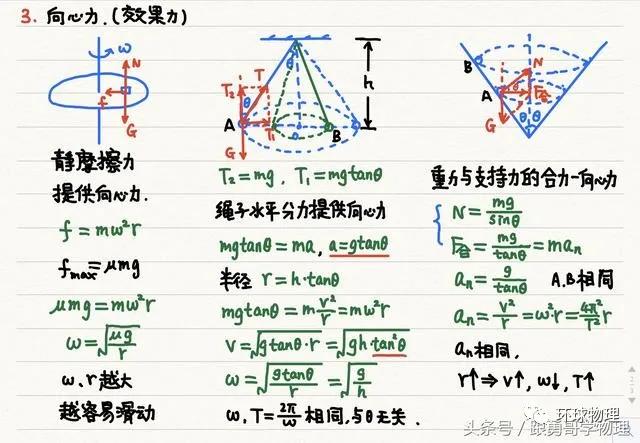 3. 向心力.(效果力)
ω
N
f
G
静摩擦力
提供向心力.
f = mω²r
fmax = μmg
μmg = mω²r
ω = √(μg/r)
ω、r越大
越容易滑动
θ
h
T₂
T
θ
A
T₁
B
G
T₂ = mg , T₁ = mgtanθ
绳子水平分力提供向心力
mgtanθ = ma, a = gtanθ
半径 r = h·tanθ
mgtanθ = m v²/r = mω²r
v = √(gtanθ·r) = √(gh·tan²θ)
ω = √(gtanθ/r) = √(g/h)
ω、T = 2π/ω 相同,与θ无关.
B
N
A
θ
F合
G
θ
θ
重力与支持力的合力—向心力
N = mg/sinθ
F合 = mg/tanθ = maₙ
aₙ = g/tanθ A、B相同
aₙ = v²/r = ω²r = 4π²/T² r
aₙ相同,
r↑ ⇒ v↑, ω↓, T↑
环球物理
头条号/跟勇哥学物理